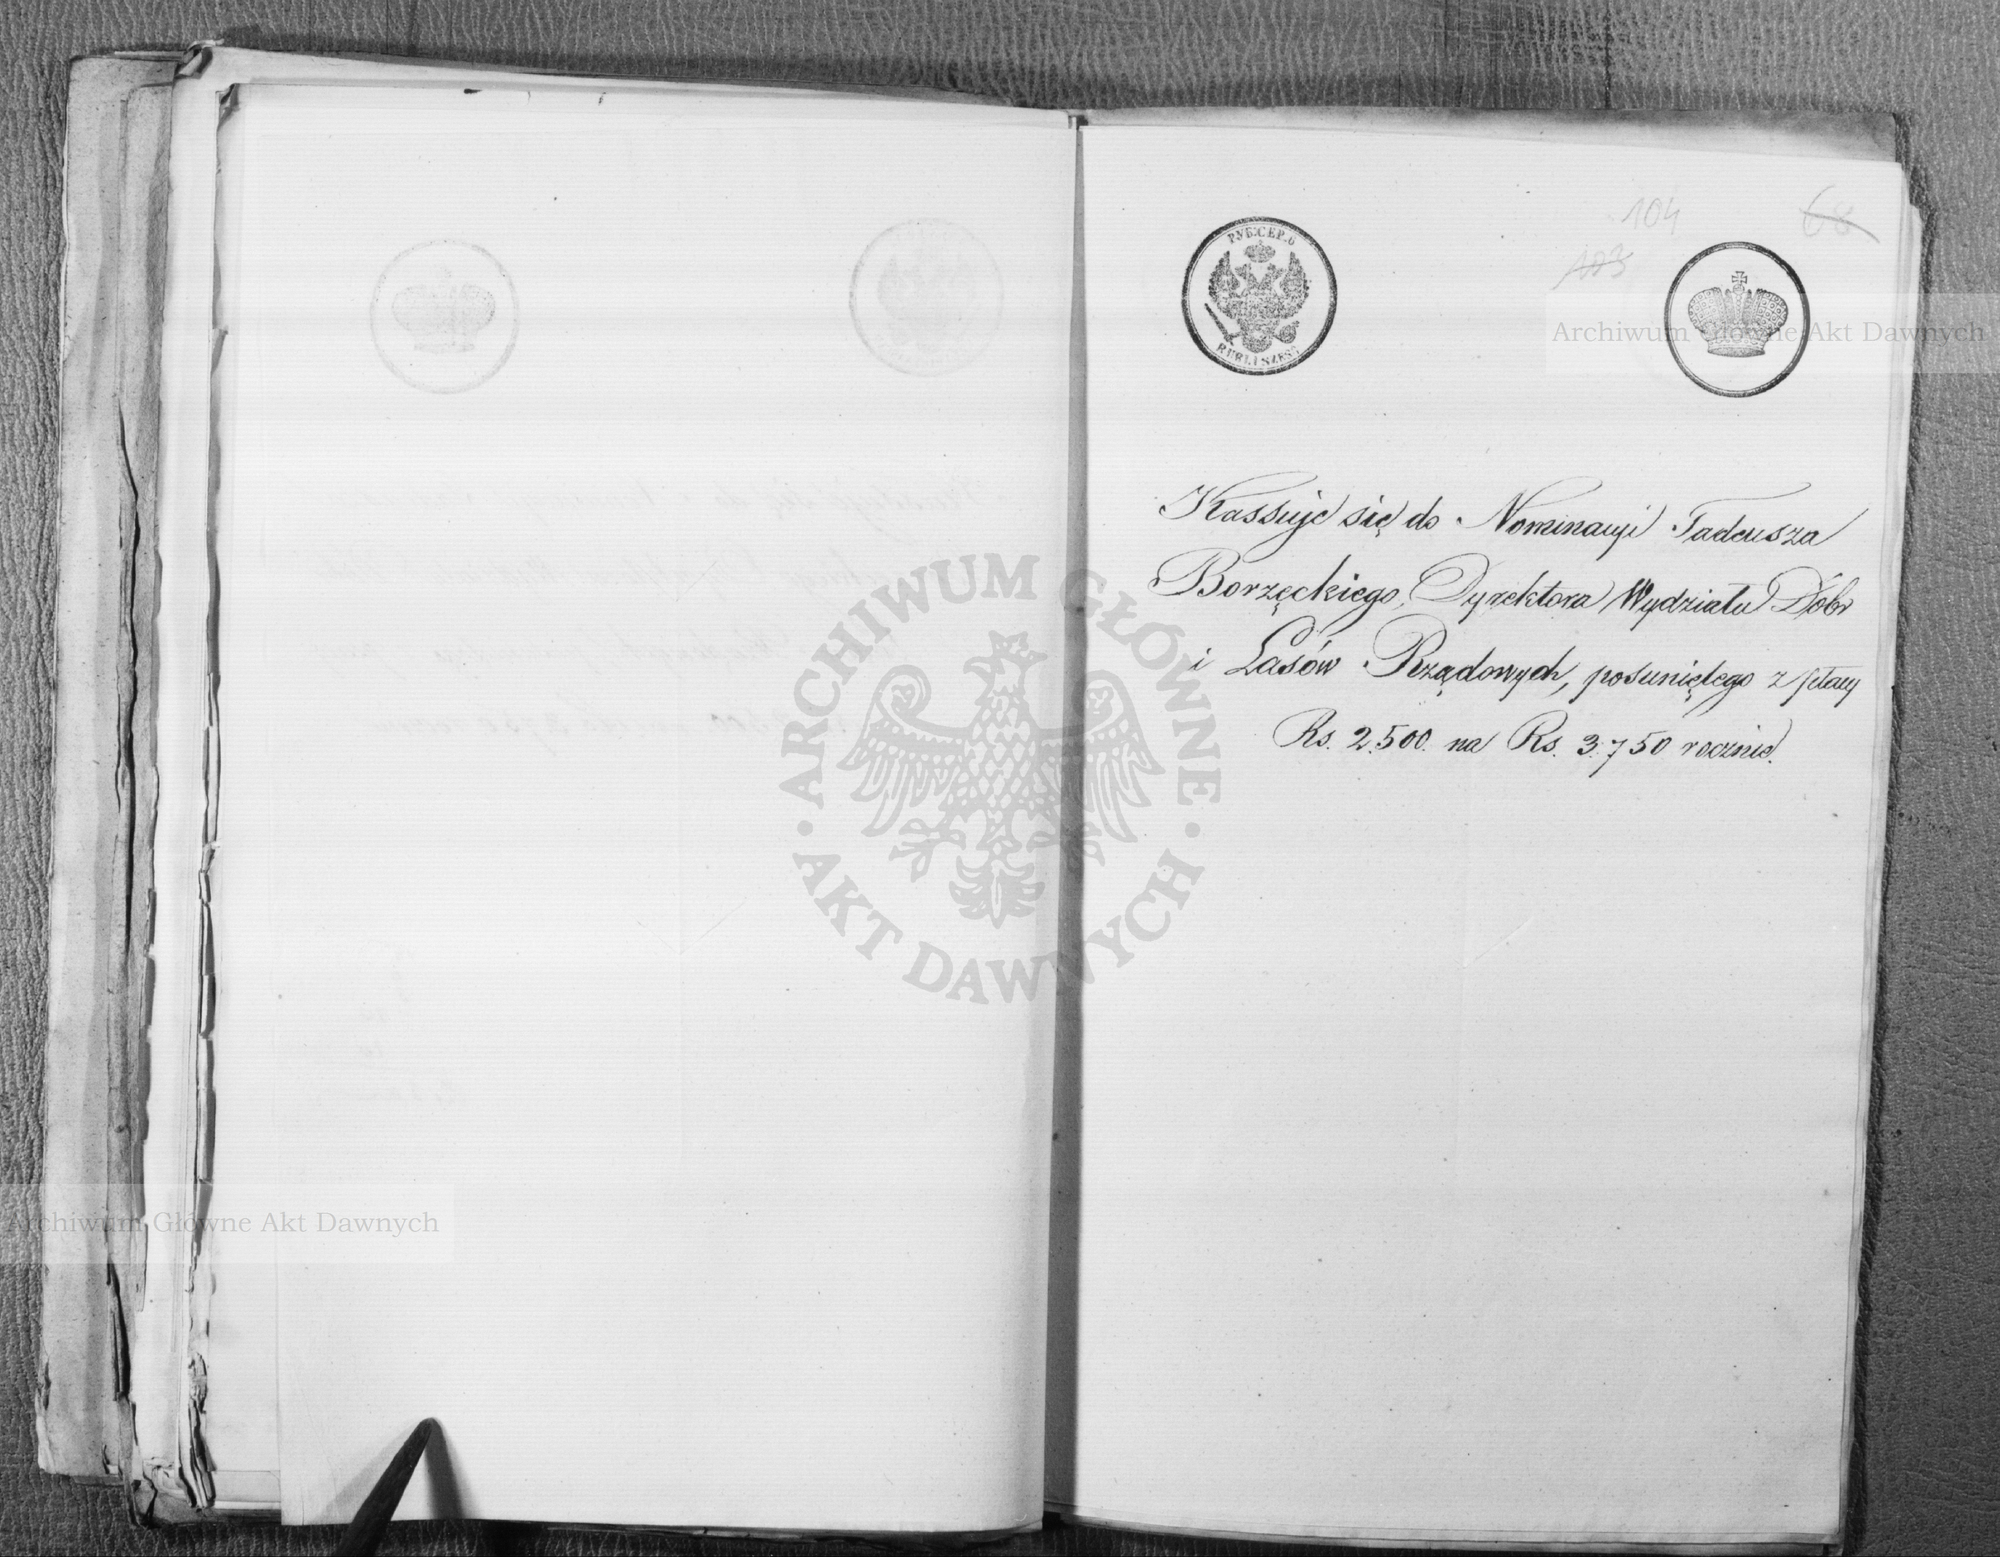 104
68
103
РУБ:СЕР. 6
RUBLI SZEŚĆ
Kassuje się do Nominacyi Tadeusza
Borzęckiego, Dyrektora Wydziału Dóbr
i Lasów Rządowych, posuniętego z płacy
Rs. 2.500. na Rs. 3.750 rocznie.
Archiwum Główne Akt Dawnych
ARCHIWUM GŁÓWNE
AKT DAWNYCH
Archiwum Główne Akt Dawnych